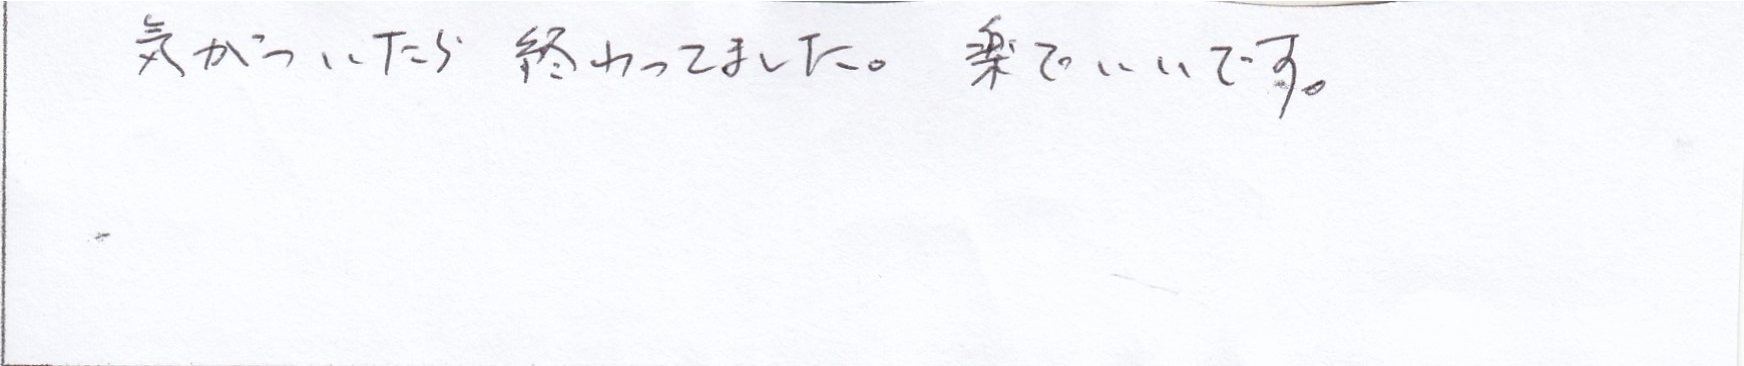 気がついたら 終わってました。 楽でいいです。